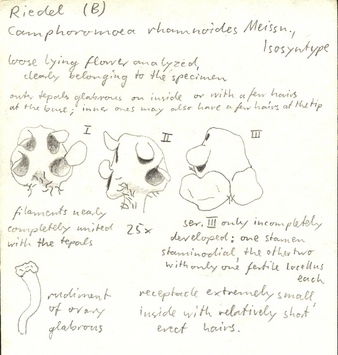 Riedel (B)
Camphoromoea rhamnoides Meissn.,
Isosyntype
loose lying flower analyzed,
clearly belonging to the specimen
outer tepals glabrous on inside or with a few hairs
at the base; inner ones may also have a few hairs at the tip
I II III
filaments nearly
completely united
with the tepals
25x
ser. III only incompletely
developed; one stamen
staminodial, the other two
with only one fertile locellus
each
rudiment
of ovary
glabrous
receptacle extremely small,
inside with relatively short
erect hairs.